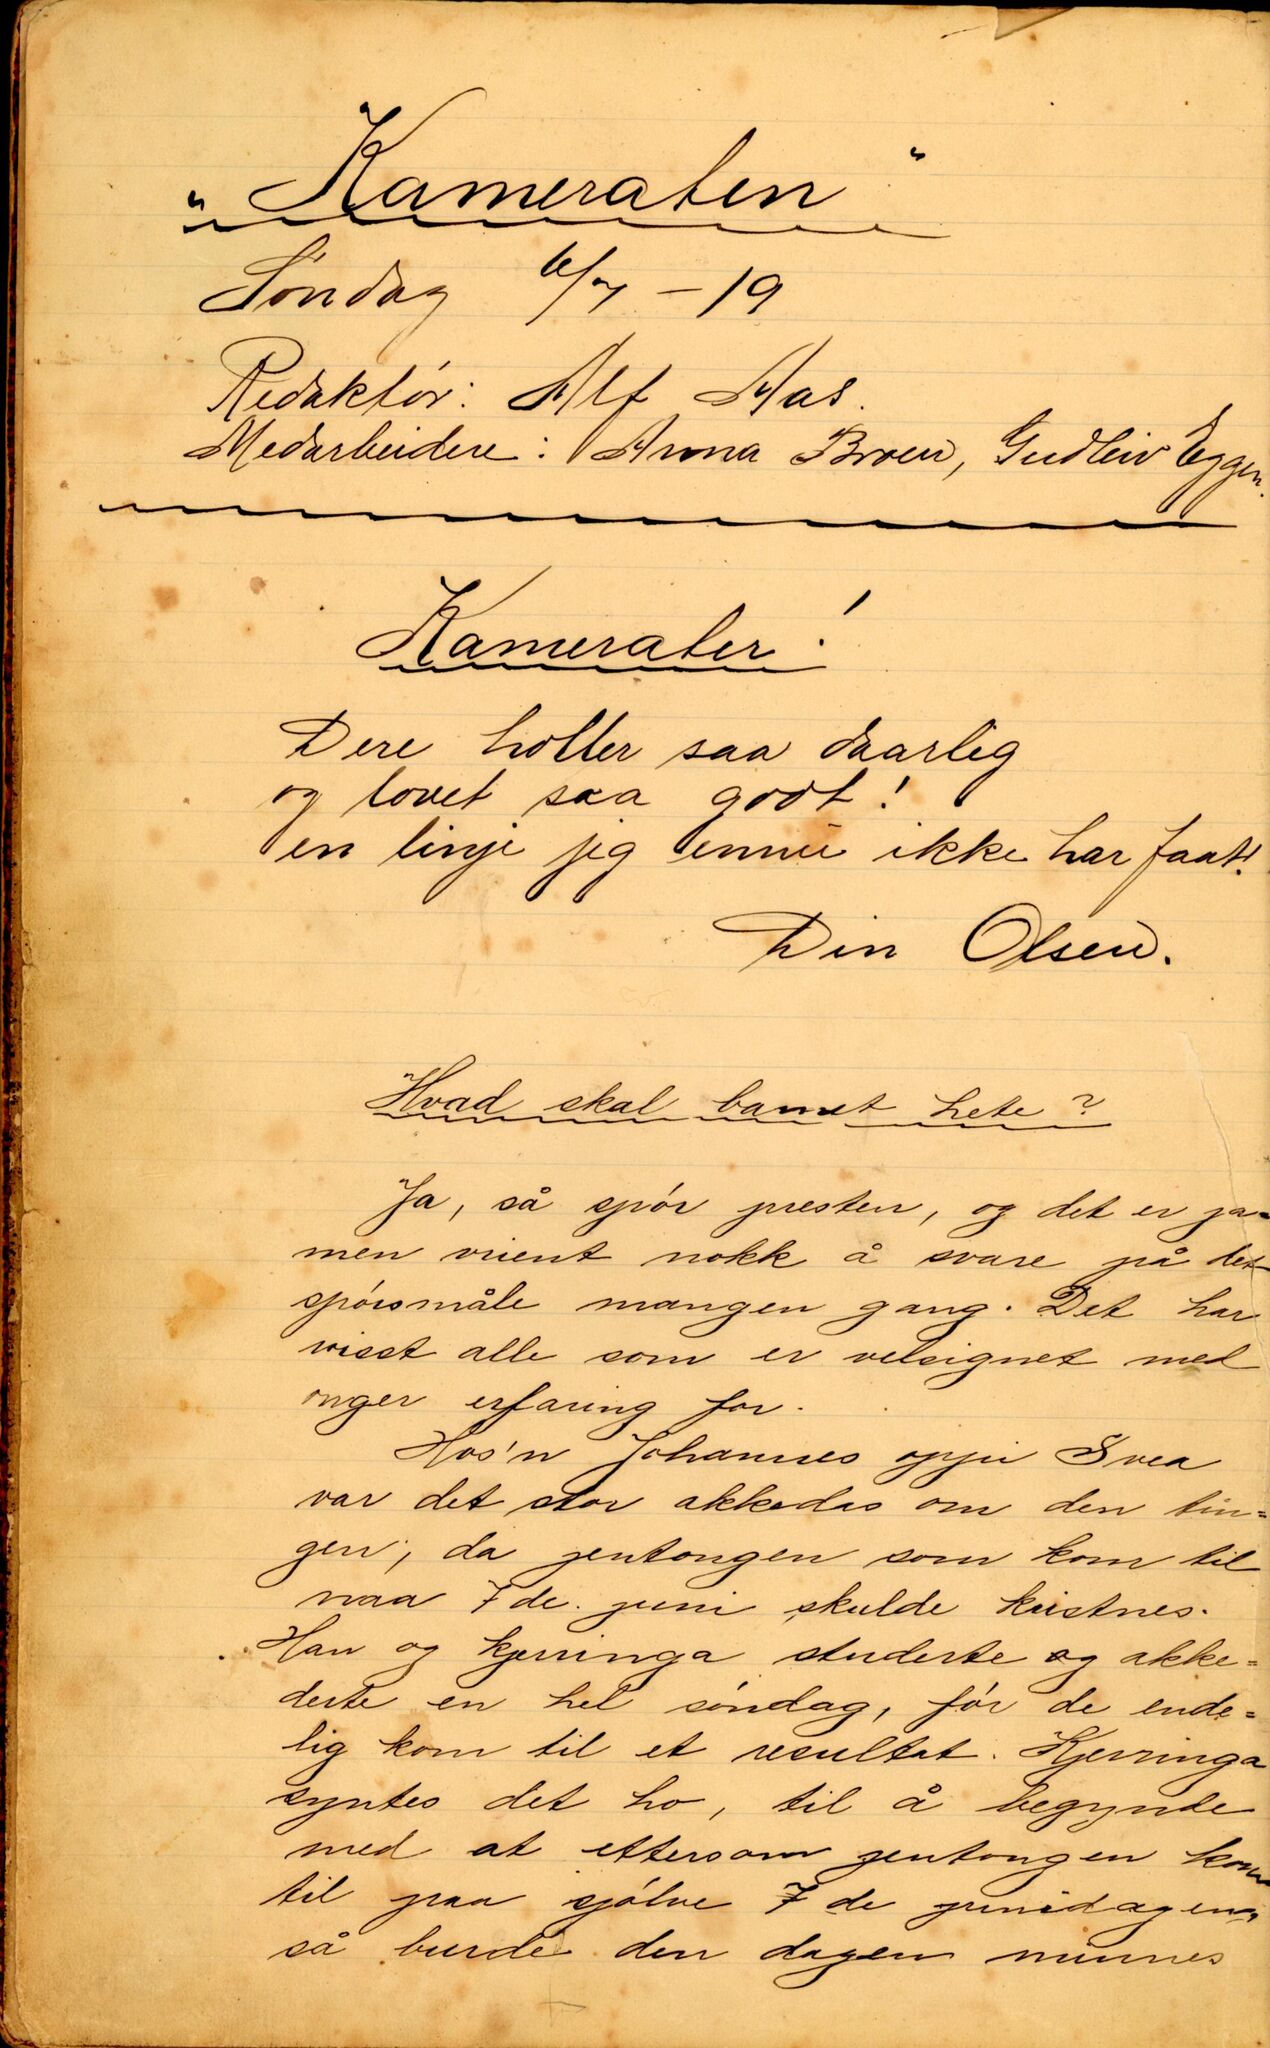 "Kameraten"
Søndag 6/7 - 19
Redaktør: Alf Aas.
Medarbeidere: Anna Broen, Gudleiv Eggen.
Kamerater!
Dere holder saa daarlig
og lovet saa godt!
en linje jeg ennu ikke har faat!
Din Olsen.
Hvad skal barnet hete?
Ja, så spør presten, og det er ja=
men vrient nokk å svare på det
spørsmåle mangen gang. Det har
visst alle som er velsignet med
onger erfaring for.
Hos'n Johannes oppi Svea
var det stor akkedas om den tin=
gen, da jentongen som kom til
naa 7de. juni skulde kristnes.
Han og kjerringa studerte og akke=
derte en hel søndag, før de ende=
lig kom til et resultat. Kjerringa
syntes det ho, til å begynde
med at ettersom jentongen kom
til paa sjølve 7de junidagen,
så burde den dagen minnes